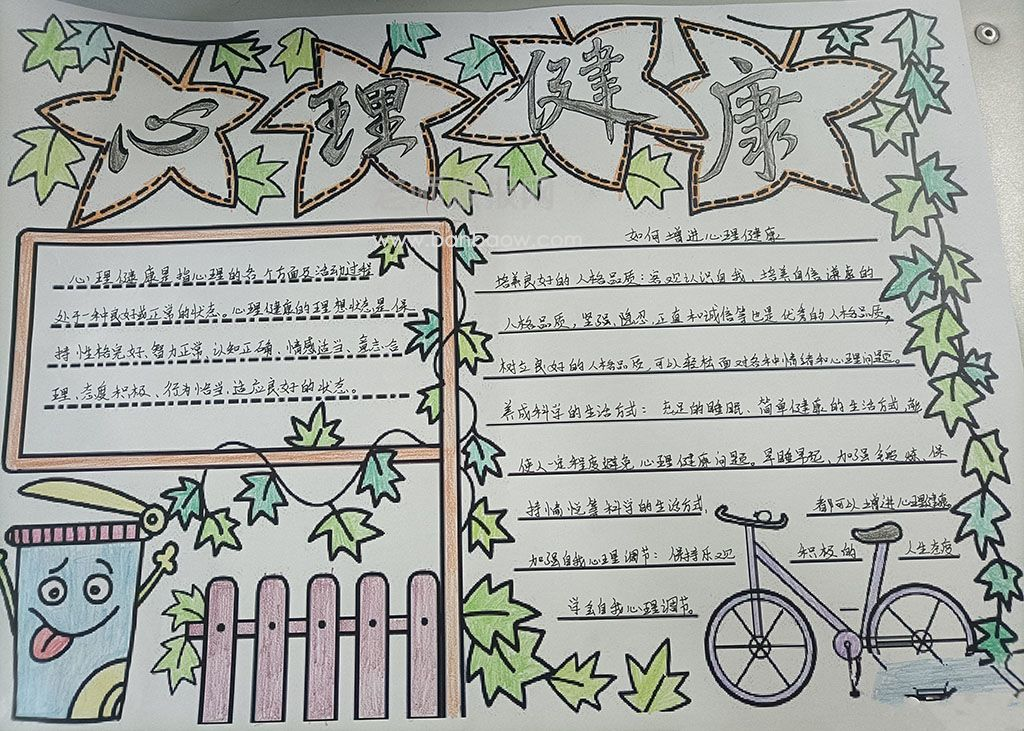 心理健康
心理健康是指心理的各个方面及活动过程
处于一种良好或正常的状态。心理健康的理想状态是保
持性格完好、智力正常、认知正确、情感适当、意志合
理、态度积极、行为恰当、适应良好的状态。
如何增进心理健康
培养良好的人格品质：客观认识自我、培养自信谦虚的
人格品质，坚强、隐忍、正直和诚信等也是优秀的人格品质，
树立良好的人格品质，可以轻松面对各种情绪和心理问题。
养成科学的生活方式：充足的睡眠、简单健康的生活方式，能
使人一定程度避免心理健康问题。早睡早起、加强锻炼、保
持愉悦等科学的生活方式，都可以增进心理健康
加强自我心理调节：保持乐观 积极的 人生态度
学会自我心理调节。
www.banbaow.com